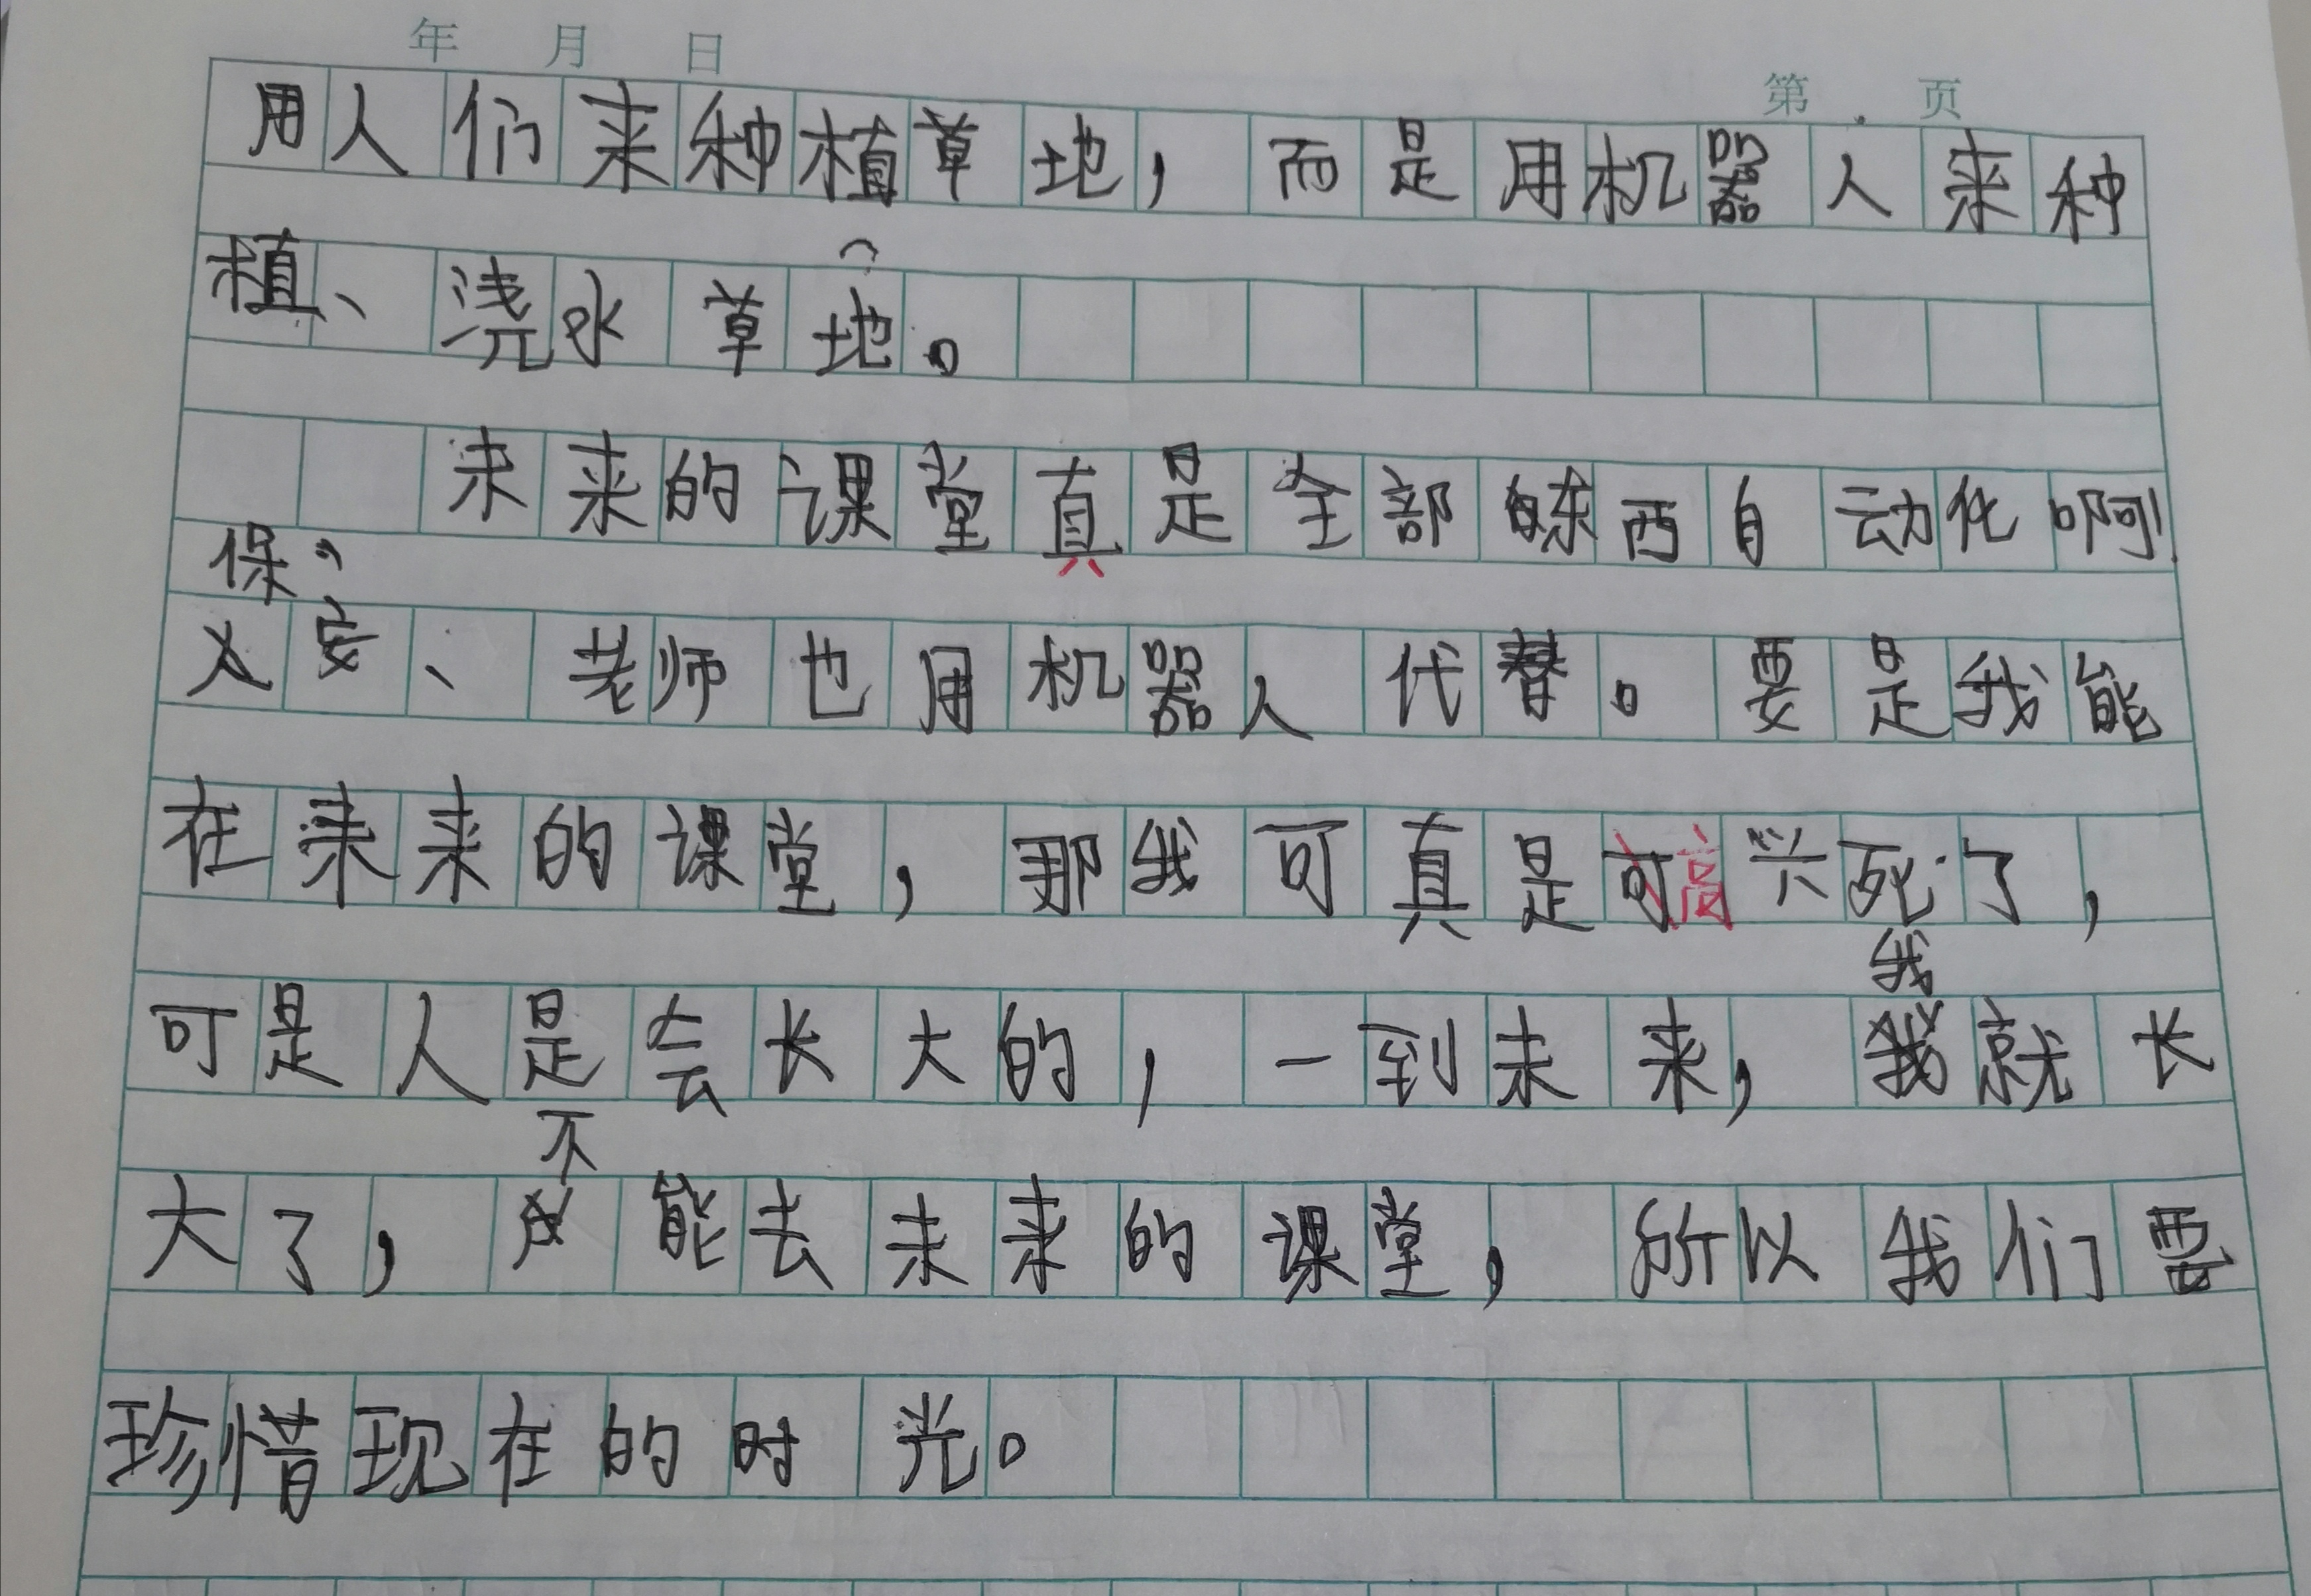 年 月 日
第 页
用人们来种植草地，而是用机器人来种
植、浇水草地。
未来的课堂真是全部东西自动化啊！
保安、老师也用机器人代替。要是我能
在未来的课堂，那我可真是高兴死了，
可是人是会长大的，一到未来，我就长
大了，不能去未来的课堂，所以我们要
珍惜现在的时光。